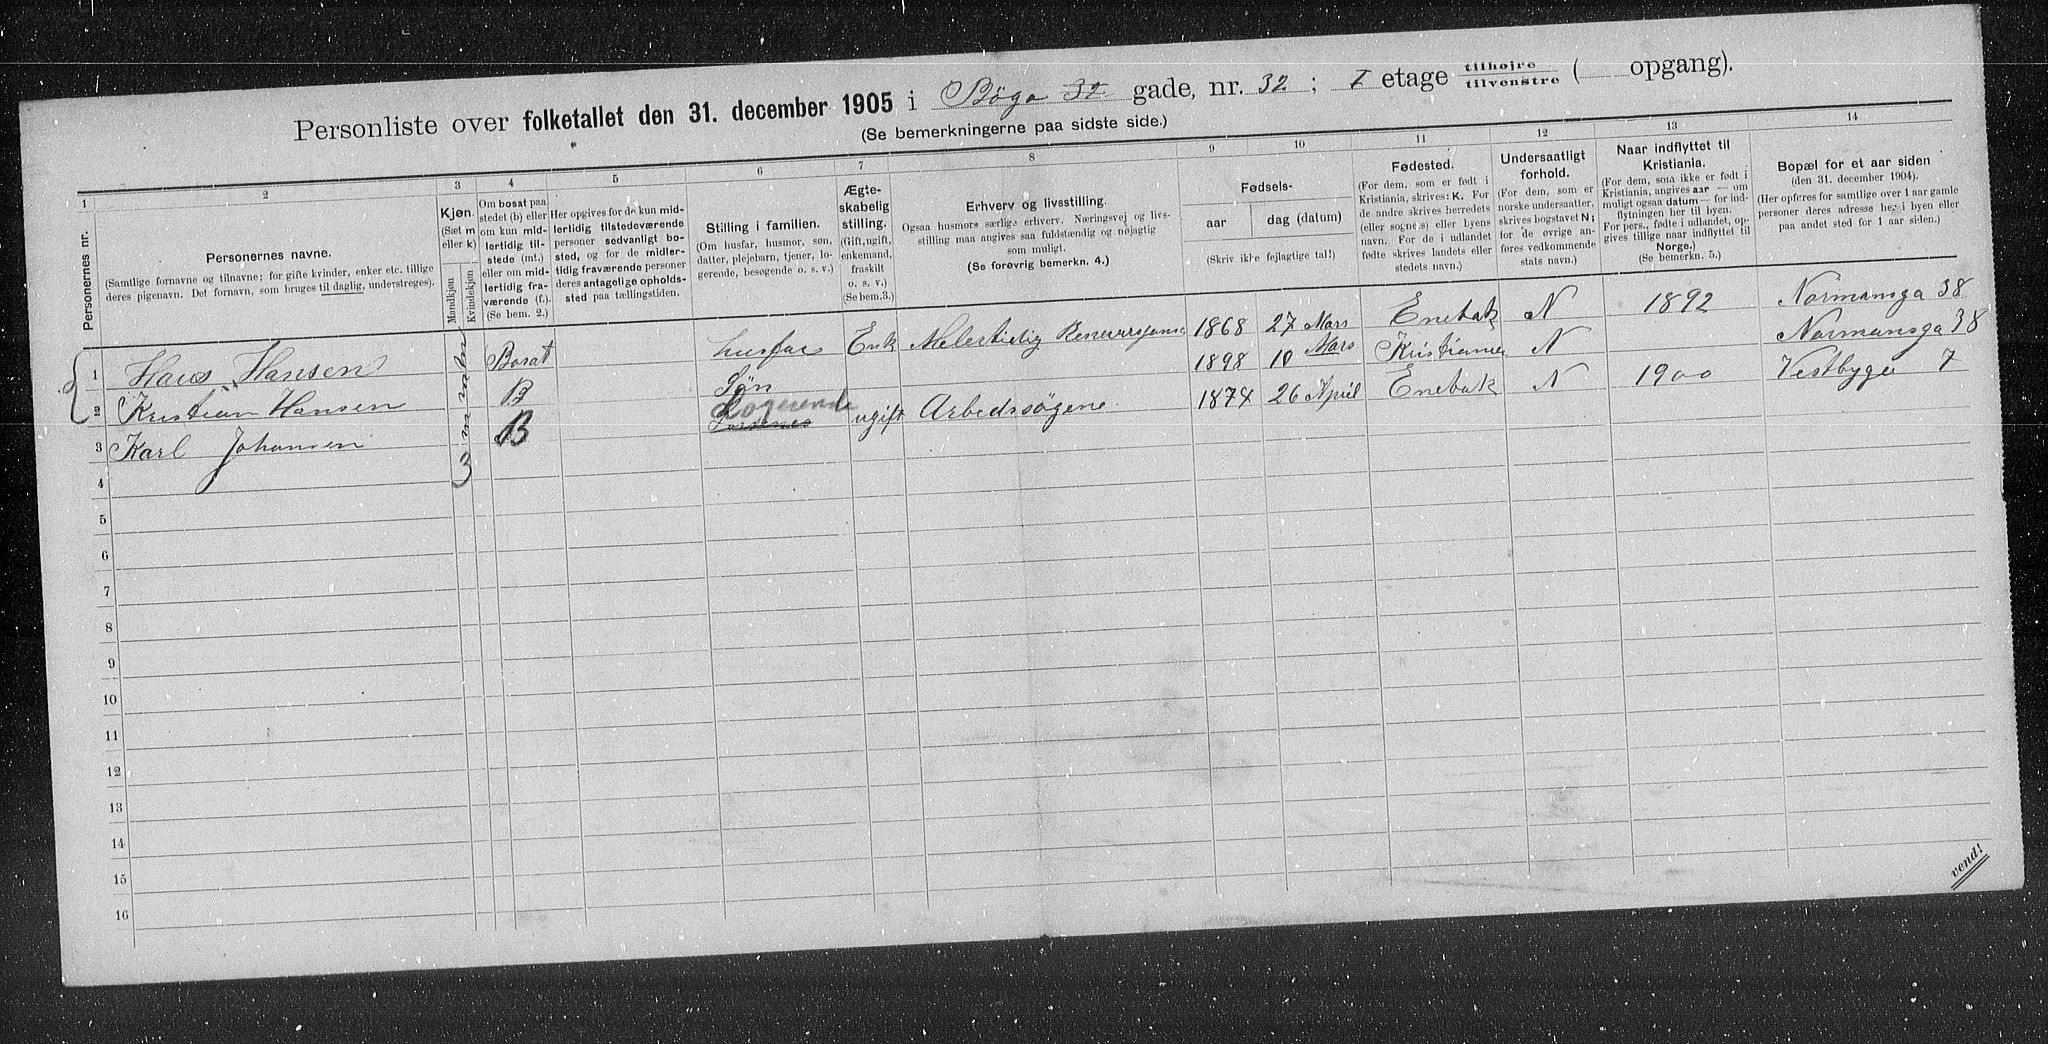 Personliste over folketallet den 31. december 1905 i Bøga 32 gade, nr. 32; I etage tilhøjre tilvenstre ( opgang).
(Se bemerkningerne paa sidste side.)
1 2 3 4 5 6 7 8 9 10 11 12 13 14
Personernes nr.
Personernes navne.
(Samtlige fornavne og tilnavne; for gifte kvinder, enker etc. tillige
deres pigenavn. Det fornavn, som bruges til daglig, understreges).
Kjøn.
(Sæt m
eller k)
Mandkjøn
Kvindekjøn
Om bosat paa
stedet (b) eller
om kun mid-
lertidig til-
stede (mt.)
eller om mid-
lertidig fra-
værende (f.).
(Se bem. 2.)
Her opgives for de kun mid-
lertidig tilstedeværende
personer sedvanligt bo-
sted, og for de midler-
tidig fraværende personer
deres antagelige opholds-
sted paa tællingstiden.
Stilling i familien.
(Om husfar, husmor, søn,
datter, plejebarn, tjener, lo-
gerende, besøgende o. s. v.)
Ægte-
skabelig
stilling.
(Gift, ugift,
enkemand,
fraskilt
o. s. v.)
(Se bem.3.)
Erhverv og livsstilling.
Ogsaa husmors særlige erhverv. Næringsvej og livs-
stilling maa angives saa fuldstændig og nøjagtig
som muligt.
(Se forøvrig bemerkn. 4.)
Fødsels-
aar
dag (datum)
(Skriv ikke fejlagtige tal!)
Fødested.
(For dem, som er født i
Kristiania, skrives: K. For
de andre skrives herredets
(eller sognes) eller byens
navn. For de i udlandet
fødte skrives landets eller
stedets navn.)
Undersaatligt
forhold.
(For dem, som er
norske undersaatter,
skrives bogstavet N;
for de øvrige an-
føres vedkommende
stats navn.)
Naar indflyttet til
Kristiania.
(For dem, som ikke er født i
Kristiania, angives aar — om
muligt ogsaa datum — for ind-
flytningen her til byen.
For pers., fødte i udlandet, op-
gives tillige naar indflyttet til
Norge.)
(Se bemerkn. 5.)
Bopæl for et aar siden
(den 31. december 1904).
(Her opføres for samtlige over 1 aar gamle
personer deres adresse her i byen eller
paa andet sted for 1 aar siden.)
1 Hans Hansen m Bosat husfar Enk 1868 27 Mars Enebak N 1892 Normansga 38
2 Kristian Hansen m B Søn 1898 10 Mars Kristiania N Normansga 38
3 Karl Johansen m B Logerende ugift Arbedssøgene 1874 26 April Enebak N 1900 Vestbyga 7
3
4
5
6
7
8
9
10
11
12
13
14
15
16
vend!